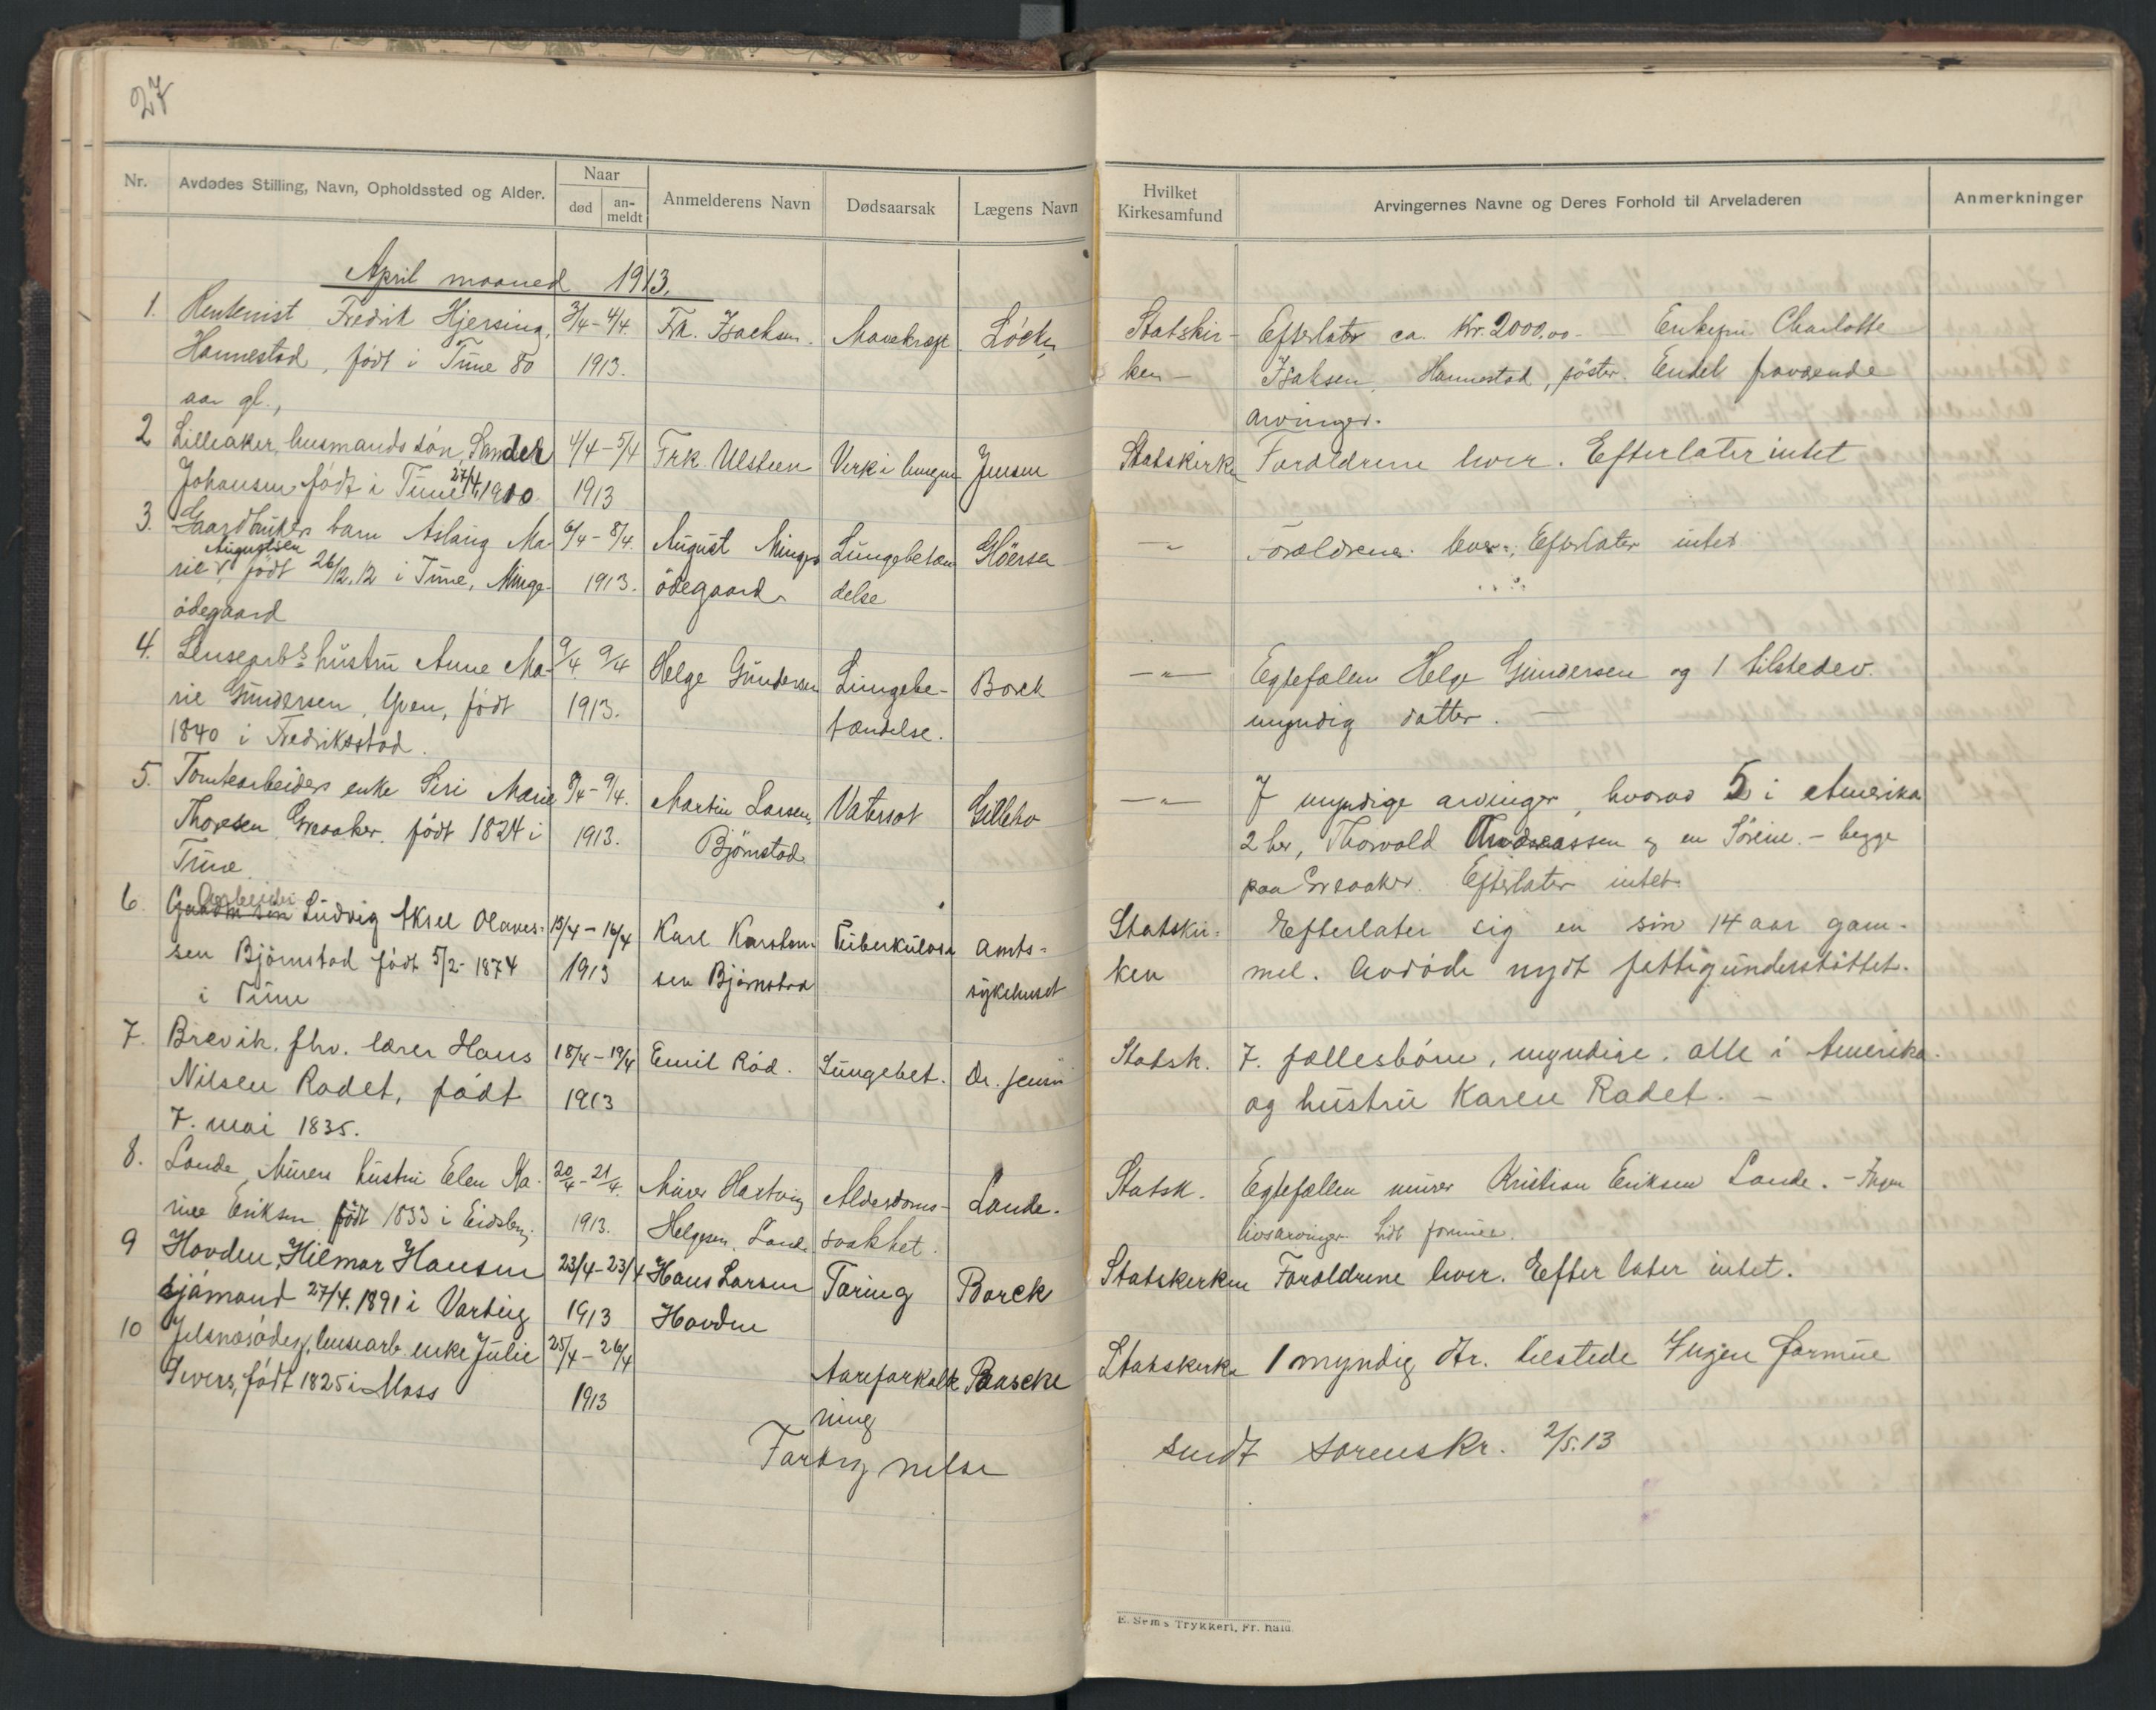 27
Nr. Avdødes Stilling, Navn, Opholdssted og Alder. Naar død an-meldt Anmelderens Navn Dødsaarsak Lægens Navn Hvilket Kirkesamfund Arvingernes Navne og Deres Forhold til Arveladeren Anmerkninger
April maaned 1913.
1. Rentenist Fredrik Hjersing, 3/4 - 4/4. Frk. Isachsen. Mavekræft Statskir- Efterlater ca. Kr. 2000,00 - Enkefru Charlotte
Hannestad, født i Tune 80 1913. ken - Isaksen, Hannestad, søster. Endel fraværende
aar gl., arvinger.
2 Lilleaker, husmands søn, Sander 4/4 - 5/4 Frk. Ulsteen Verk i lungen Jensen Statskirke Forældrene lever. Efterlater intet
Johansen født i Tune 27/4 1900. 1913
3. Gaardbrukers barn Aslaug Ma- 6/4 - 8/4. August Minge Lungebetæn Gløersen -„- Forældrene lever. Efterlater intet
rie Augustsen, født 26/12.12 i Tune, Minge- 1913. ødegaard delse
ødegaard
4. Lensearb.s hustru Anne Ma- 9/4 9/4 Helge Gundersen Lungebe- Borch -„- Egtefælen Helge Gundersen og 1 tilstedev.
rie Gundersen, Yven, født 1913. tændelse. myndig datter. -
1840 i Fredriksstad.
5. Tomtearbeiders enke Siri Marie 8/4 - 9/4. Martin Larsen, Vatersot Gillebo -„- 7 myndige arvinger, hvorav 5 i Amerika
Thoresen Greaaker. født 1824 i 1913. Bjørnstad 2 her, Thorvald Andreassen og en Sørine. - begge
Tune paa Greaaker. Efterlater intet.
6. Gaardm søn Arbeider Ludvig Aksel Olaves- 15/4 - 16/4 Karl Karsten- Tuberkulose amts- Statskir- Efterlater sig en søn 14 aar gam-
sen Bjørnstad født 5/2 - 1874 1913 sen Bjørnstad sykehuset ken mel. Avdøde nydt fattigunderstøttet.
i Tune
7. Brevik. fhv. lærer Hans 18/4 - 19/4 Emil Rød. Lungebet. Dr. Jensen Statsk. 7. fællesbørn, myndige, alle i Amerika.
Nilsen Radet, født 1913 og hustru Karen Radet. -
7. mai 1835.
8. Lande, Murers hustru Elen Ka- 20/4 - 21/4. Murer Hartvig Alderdoms- Lande. Statsk. Egtefællen murer Kristian Eriksen Lande. - Ingen
rine Eriksen født 1833 i Eidsberg. 1913. Helgesen, Lande svakhet. livsarvinger. Lidt formue.
9 Hovden, Hilmar Hansen 23/4 - 23/4 Hans Larsen Tæring Borck Statskerken Foraldrene lever. Efter later intet.
sjømand 27/4. 1891 i Varteig 1913 Hovden
10 Jelsnæsødeg, lensearb. enke Julie 25/4 - 26/4 Aareforkalk Paascke Statskerke 1 myndig dtr. tilstede Ingen formue
Sivers, født 1825 i Moss 1913 ning
sendt sorenskr. 2/5. 13
E. Sem's Trykkeri, Fr.hald.